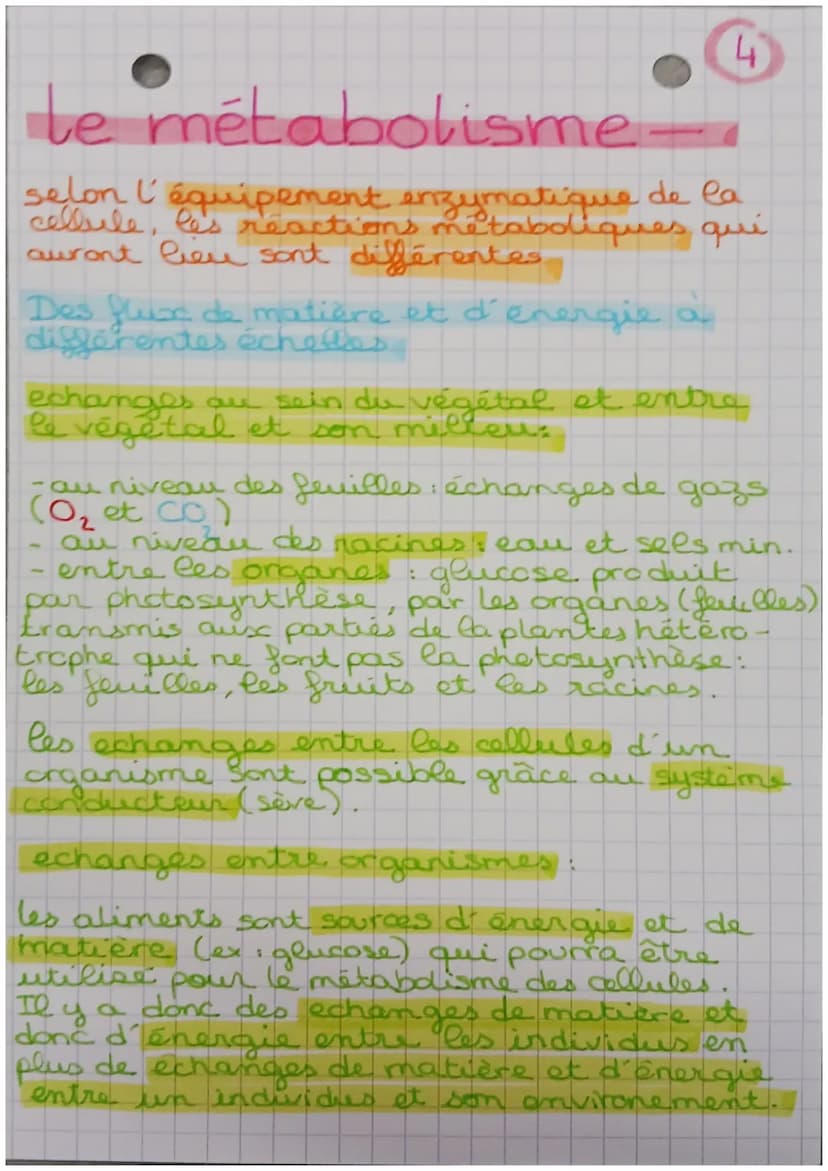 4
Le métabolisme
selon l'équipement enzymatique de la
cellule, les réactions métaboliques qui
auront lieu sont différentes.
Des flux de matière et d'énergie à
différentes échelles
echanges au sein du végétal et entre
le végétal et son milieu:
- au niveau des feuilles : échanges de gazs
(O2 et CO2)
- au niveau des racines : eau et sels min.
- entre les organes : glucose produit
par photosynthèse, par les organes (feuilles)
transmis aux parties de la plantes hétéro-
trophe qui ne font pas la photosynthèse:
les feuilles, les fruits et les racines.
les echanges entre les cellules d'un
organisme sont possible grâce au système
conducteur (sève).
echanges entre organismes :
les aliments sont sources d'énergie et de
matière (ex : glucose) qui pourra être
utilisé pour le métabolisme des cellules.
Il y a donc des echanges de matière et
donc d'énergie entre les individus en
plus de echanges de matière et d'énergie
entre un individus et son environement.